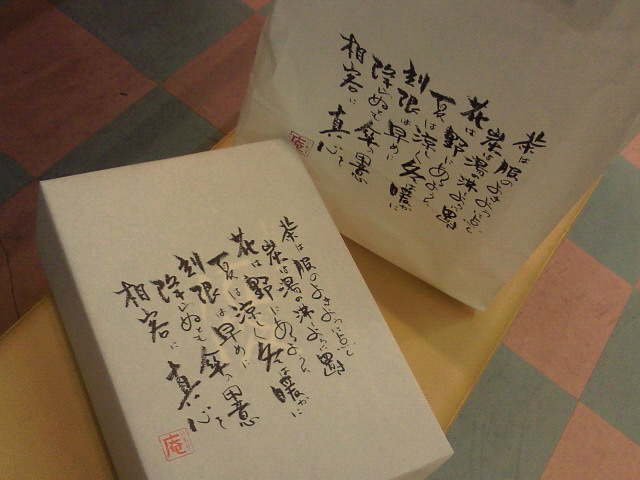 茶は服のよきように点て
炭は湯の沸くように置き
花は野にあるように
夏は涼しく冬は暖かに
刻限は早めに
降らぬとも傘の用意
相客に 真心を
庵
茶は服のよきように点て
炭は湯の沸くように置き
花は野にあるように
夏は涼しく冬は暖かに
刻限は早めに
降らぬとも傘の用意
相客に 真心を
庵